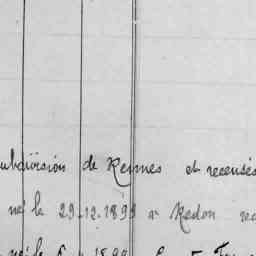 subdivision de Rennes et recensés
né le 29.12.1899 à Redon
né le